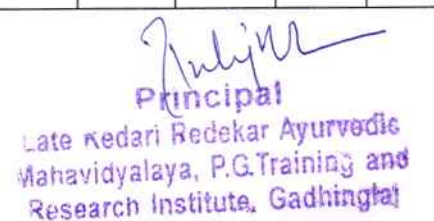 Principal
Late Kedari Redekar Ayurvedic
Mahavidyalaya, P.G.Training and
Research Institute, Gadhinglaj